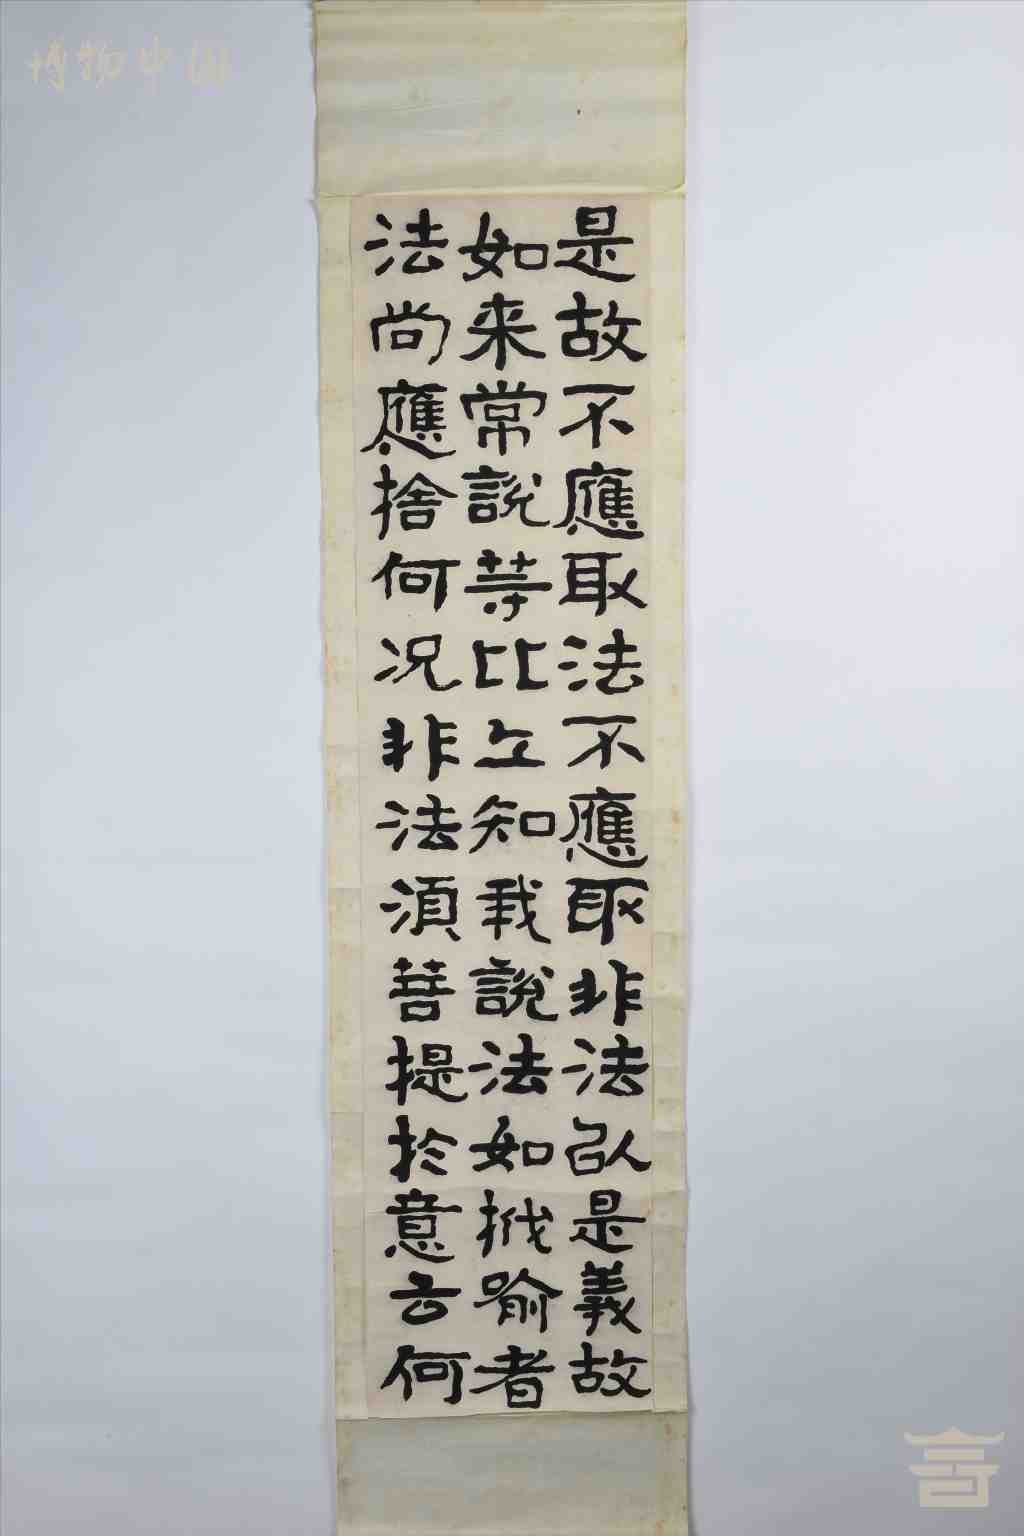 博物中国
是故不應取法不應取非法以是義故
如来常說等比丘知我說法如栰喻者
法尚應捨何况非法湏菩提於意云何